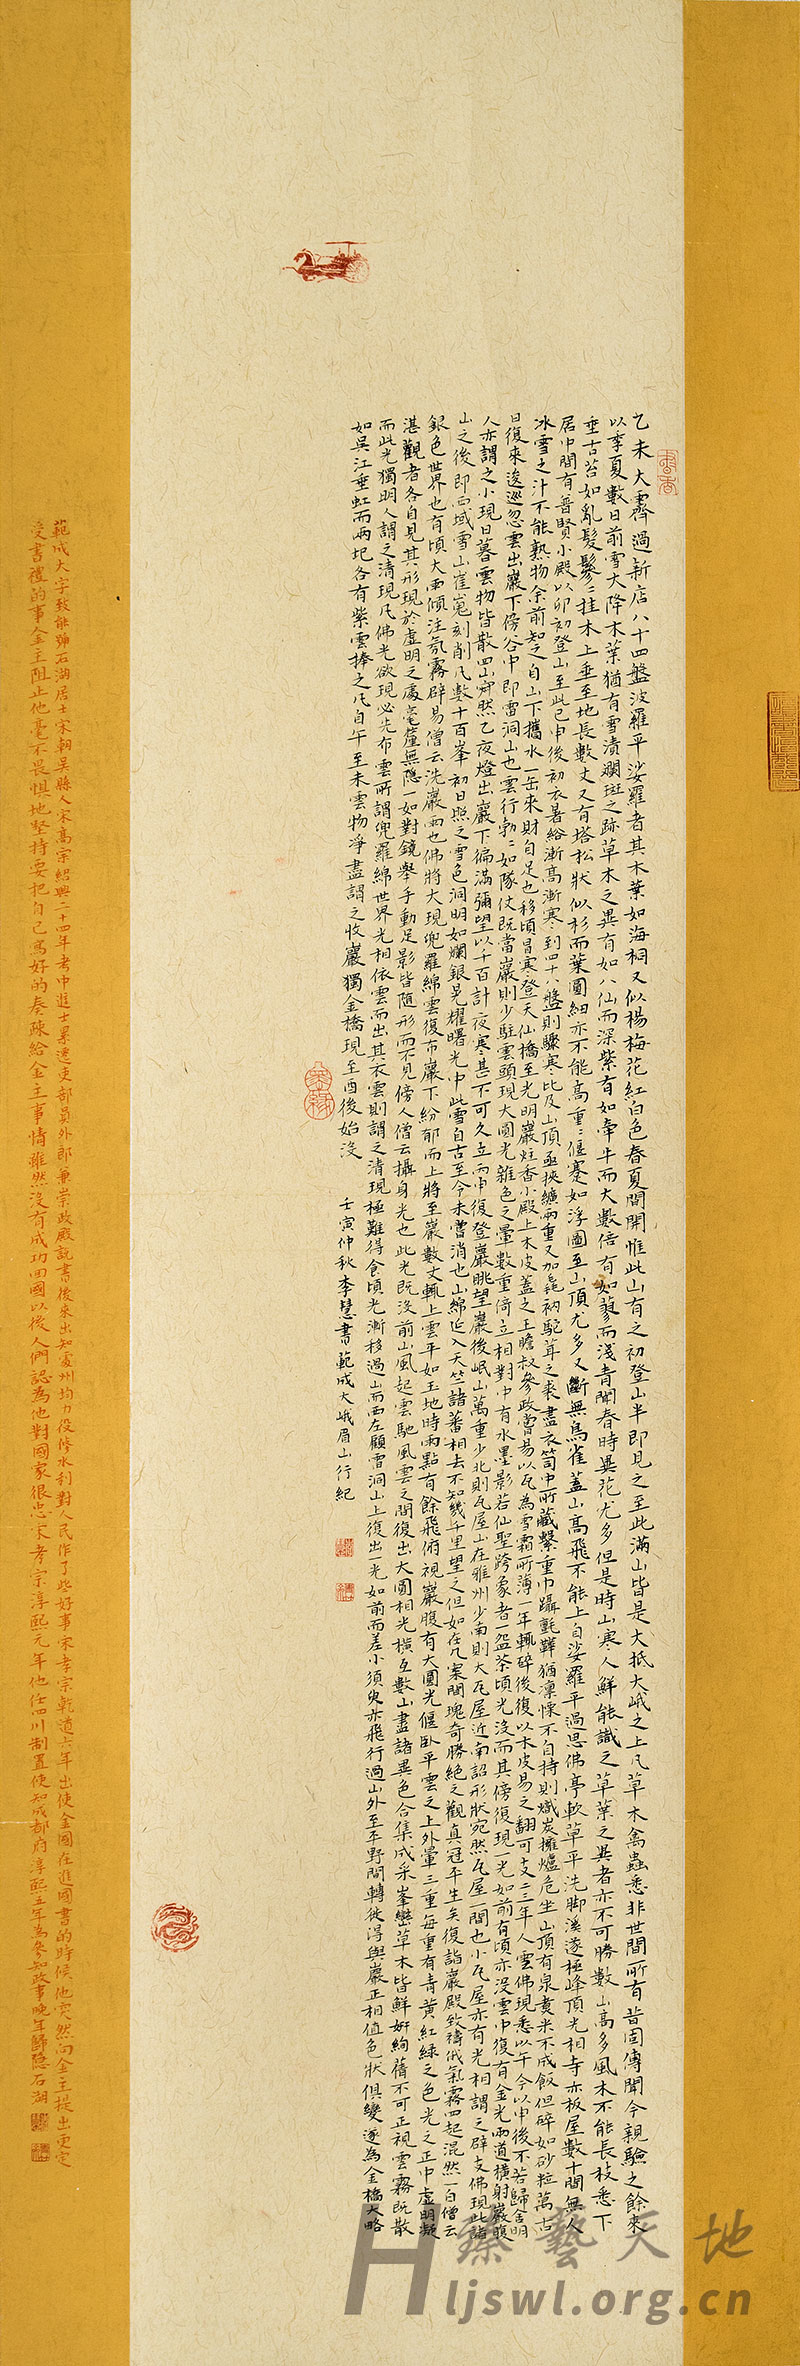 乙未大霽過新店八十四盤娑羅平娑羅者其木葉如海桐又似楊梅花紅白色春夏間開惟此山有之初登山半即見之至此滿山皆是大抵大峨之上凡草木禽蟲悉非世間所有昔固傳聞今親驗之余來
以季夏數日前雪大降木葉猶有雪漬斕斑之跡草木之異有如八仙而深紫有如牽牛而大數倍有如蓼而淺青聞春時異花尤多但是時山寒人鮮能識之草葉之異者亦不可勝數山高多風木不能長枝悉下
垂古苔如亂髮鬖鬖挂木上垂至地長數丈又有塔松狀似杉而葉圓細亦不能高重重偃蹇如浮圖至山頂尤多又斷無鳥雀蓋山高飛不能上自娑羅平過思佛亭軟草平洗腳溪遂極峰頂光相寺亦板屋數十間無人
居中間有普賢小殿以卯初登山至此已申後初衣暑綌漸高漸寒到八十四盤則驟寒比及山頂亟挾纊兩重又加毳衲駝茸之裘盡衣笥中所藏繫重巾躡氈鞾猶凜慄不自持則熾炭擁爐危坐山頂有泉煮米不成飯但碎如砂粒萬古
冰雪之汁不能熟物余前知之自山下攜水一缶來財自足也移頃冒寒登天仙橋至光明巖炷香小殿上木皮蓋之王瞻叔參政嘗易以瓦為雪霜所薄一年輒碎後復以木皮易之翻可支二三年人雲佛現悉以午今以申後不若歸舍明
日復來逡巡忽雲出巖下傍谷中即雷洞山也雲行勃勃如隊仗既當巖則少駐雲頭現大圓光雜色之暈數重倚立相對中有水墨影若仙聖跨象者一盌茶頃光沒而其傍復現一光如前有頃亦沒雲中復有金光兩道橫射巖腹
人亦謂之小現日暮雲物皆散四山寂然乙夜燈出巖下徧滿彌望以千百計夜寒甚不可久立丙申復登巖眺望巖後岷山萬重少北則瓦屋山在雅州少南則大瓦屋近南詔形狀宛然瓦屋一間也小瓦屋亦有光相謂之辟支佛現此諸
山之後即西域雪山崔嵬刻削凡數十百峯初日照之雪色洞明如爛銀晃耀曙光中此雪自古至今未嘗消也山綿延入天竺諸蕃相去不知幾千里望之但如在几案間瑰奇勝絕之觀真冠平生矣復詣巖殿致禱俄氛霧四起混然一白僧云
銀色世界也有頃大雨傾注氛霧辟易僧云洗巖雨也佛將大現兜羅綿雲復布巖下紛郁而上將至巖數丈輒上雲平如玉地時雨點有餘飛俯視巖腹有大圓光偃臥平雲之上外暈三重每重有青黃紅綠之色光之正中虛明凝
湛觀者各自見其形現於虛明之處毫釐無隱一如對鏡舉手動足影皆隨形而不見傍人僧云攝身光也此光既沒前山風起雲馳風雲之間復出大圓相光橫亙數山盡諸異色合集成采峯巒草木皆鮮妍絢蒨不可正視雲霧既散
而此光獨明人謂之清現凡佛光欲現必先布雲所謂兜羅綿世界光相依雲而出其衣雲則謂之清現極難得食頃光漸移過山而西左顧雷洞山上復出一光如前而差小須臾亦飛行過山外至平野間轉徙得與巖正相值色狀俱變遂為金橋大略
如吳江垂虹而兩圯各有紫雲捧之凡自午至未雲物淨盡謂之收巖獨金橋現至酉後始沒
壬寅仲秋李慧書範成大峨眉山行紀
範成大字致能號石湖居士宋朝吳縣人宋高宗紹興二十四年考中進士累遷吏部員外郎兼崇政殿說書後來出知處州均力役修水利對人民作了些好事宋孝宗乾道六年出使金國在進國書的時候他突然向金主提出更定
受書禮的事金主阻止他毫不畏懼地堅持要把自己寫好的奏陳給金主事情雖然沒有成功回國以後人們認為他對國家很忠宋孝宗淳熙元年他任四川制置使知成都府淳熙五年為參知政事晚年歸隱石湖
臻藝天地
Hljswl.org.cn